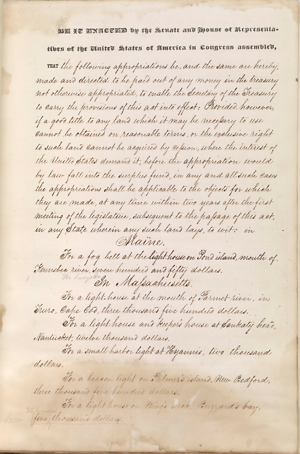 BE IT ENACTED by the Senate and House of Representa-
tives of the United States of America in Congress assembled,
THAT the following appropriations be, and the same are hereby,
made and directed to be paid out of any money in the treasury
not otherwise appropriated, to enable the Secretary of the Treasury
to carry the provisions of this act into effect: Provided, however,
if a good title to any land which it may be necessary to use
cannot be obtained on reasonable terms, or the exclusive right
to such land cannot be acquired by cession, where the interest of
the United States demand it, before the appropriation would
by law fall into the surplus fund, in any and all such cases
the appropriations shall be applicable to the objects for which
they are made, at any time within two years after the first
meeting of the legislature, subsequent to the passage of this act,
in any State wherein any such land lays, to wit: in
Maine.
For a fog bell at the light house on Pond island, mouth of
Kennebec river, seven hundred and fifty dollars.
In Massachusetts.
For a light house at the mouth of Parmet river, in
Truro, Cape Cod, three thousand five hundred dollars.
For a light house and keeper's house at Sankaty head,
Nantucket, twelve thousand dollars.
For a small harbor light at Hyannis, two thousand
dollars.
For a beacon light on Palmer's island, New Bedford,
three thousand five hundred dollars.
For a light house on Wing's Buzzard's bay,
five thousand dollars.